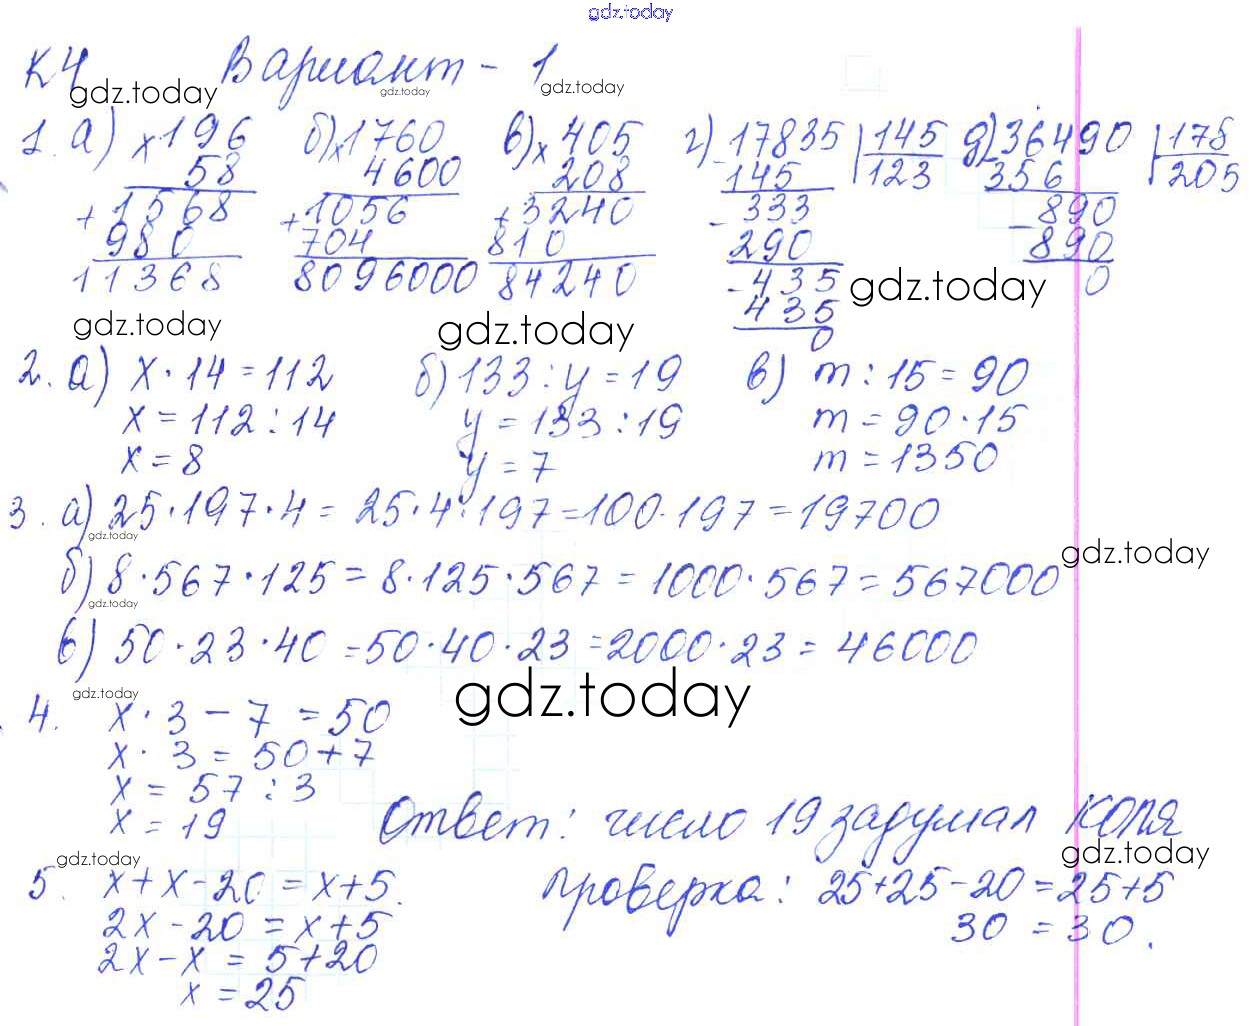 gdz.today
К4 Вариант - 1
gdz.today gdz.today gdz.today
1. а) × 196 б) × 1760 в) × 405 г) - 17835 | 145 д) - 36490 | 178
58 4600 208 145 123 356 205
+ 1568 + 1056 + 3240 - 333 - 890
980 704 810 290 890
11368 8096000 84240 - 435 gdz.today 0
gdz.today gdz.today 435
0
2. а) x · 14 = 112 б) 133 : y = 19 в) m : 15 = 90
x = 112 : 14 y = 133 : 19 m = 90 · 15
x = 8 y = 7 m = 1350
3. а) 25 · 197 · 4 = 25 · 4 · 197 = 100 · 197 = 19700
gdz.today gdz.today
б) 8 · 567 · 125 = 8 · 125 · 567 = 1000 · 567 = 567000
gdz.today
в) 50 · 23 · 40 = 50 · 40 · 23 = 2000 · 23 = 46000
gdz.today gdz.today
4. x · 3 - 7 = 50
x · 3 = 50 + 7
x = 57 : 3
x = 19 Ответ: число 19 задумал Коля
gdz.today gdz.today
5. x + x - 20 = x + 5. Проверка: 25 + 25 - 20 = 25 + 5
2x - 20 = x + 5 30 = 30.
2x - x = 5 + 20
x = 25